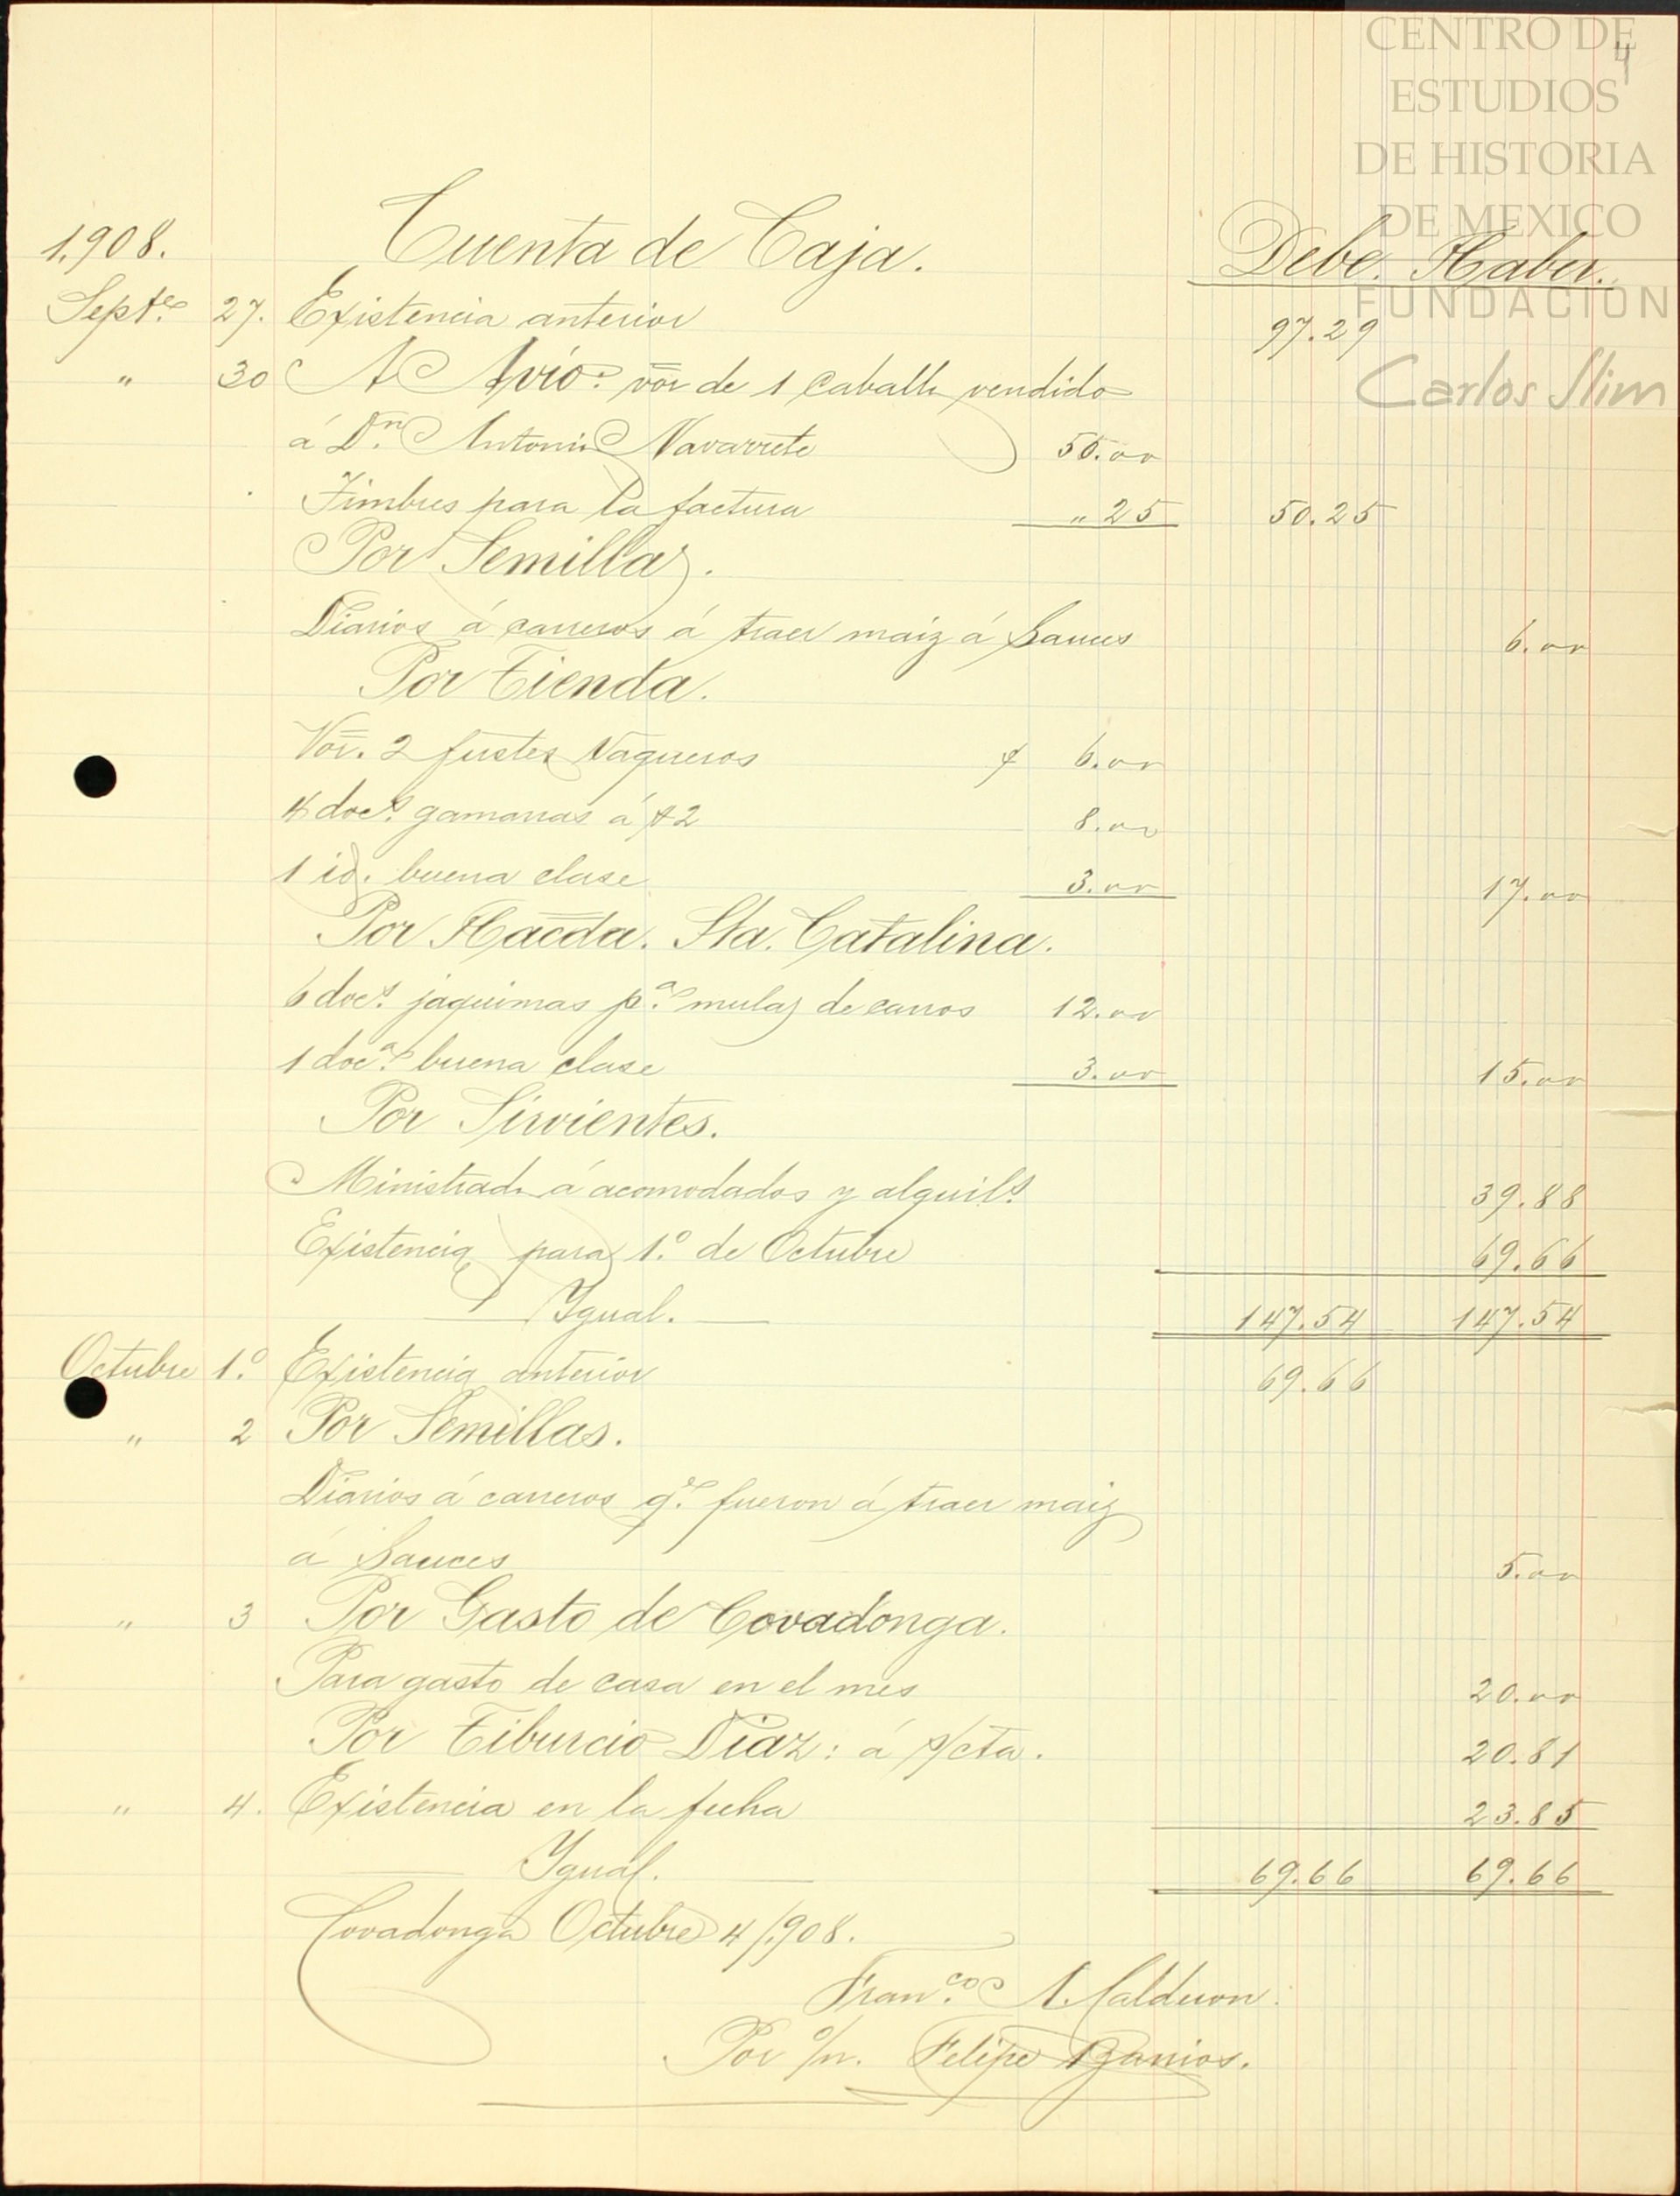 CENTRO DE
ESTUDIOS
DE HISTORIA
DE MEXICO
FUNDACION
Carlos Slim
4
1,908. Cuenta de Caja. Debe. Haber.
Septe. 27. Existencia anterior 97.29
" 30 A Avio: vor de 1 Caballo vendido
á Dn. Antonio Navarrete 50.00
Timbres para la factura " 25 50.25
Por Semillas.
Diarios á carreros á traer maiz á Sauces 6.00
Por Tienda.
Vor. 2 fustes Vaqueros $ 6.00
4 docs. gamarras á $2 8.00
1 id. buena clase 3.00 17.00
Por Hacda. Sta. Catalina.
6 docs. jaquimas pa. mulas de carros 12.00
1 doca. buena clase 3.00 15.00
Por Sirvientes.
Ministrado á acomodados y alquils. 39.88
Existencia para 1.º de Octubre 69.66
Ygual. 147.54 147.54
Octubre 1.º Existencia anterior 69.66
" 2 Por Semillas.
Diarios á carreros qe. fueron á traer maiz
á Sauces 5.00
" 3 Por Gasto de Covadonga.
Para gasto de casa en el mes 20.00
Por Tiburcio Diaz: á s/cta. 20.81
" 4. Existencia en la fecha 23.85
Ygual. 69.66 69.66
Covadonga Octubre 4/908.
Franco. A. Calderon.
Por o/n. Felipe Barrios.